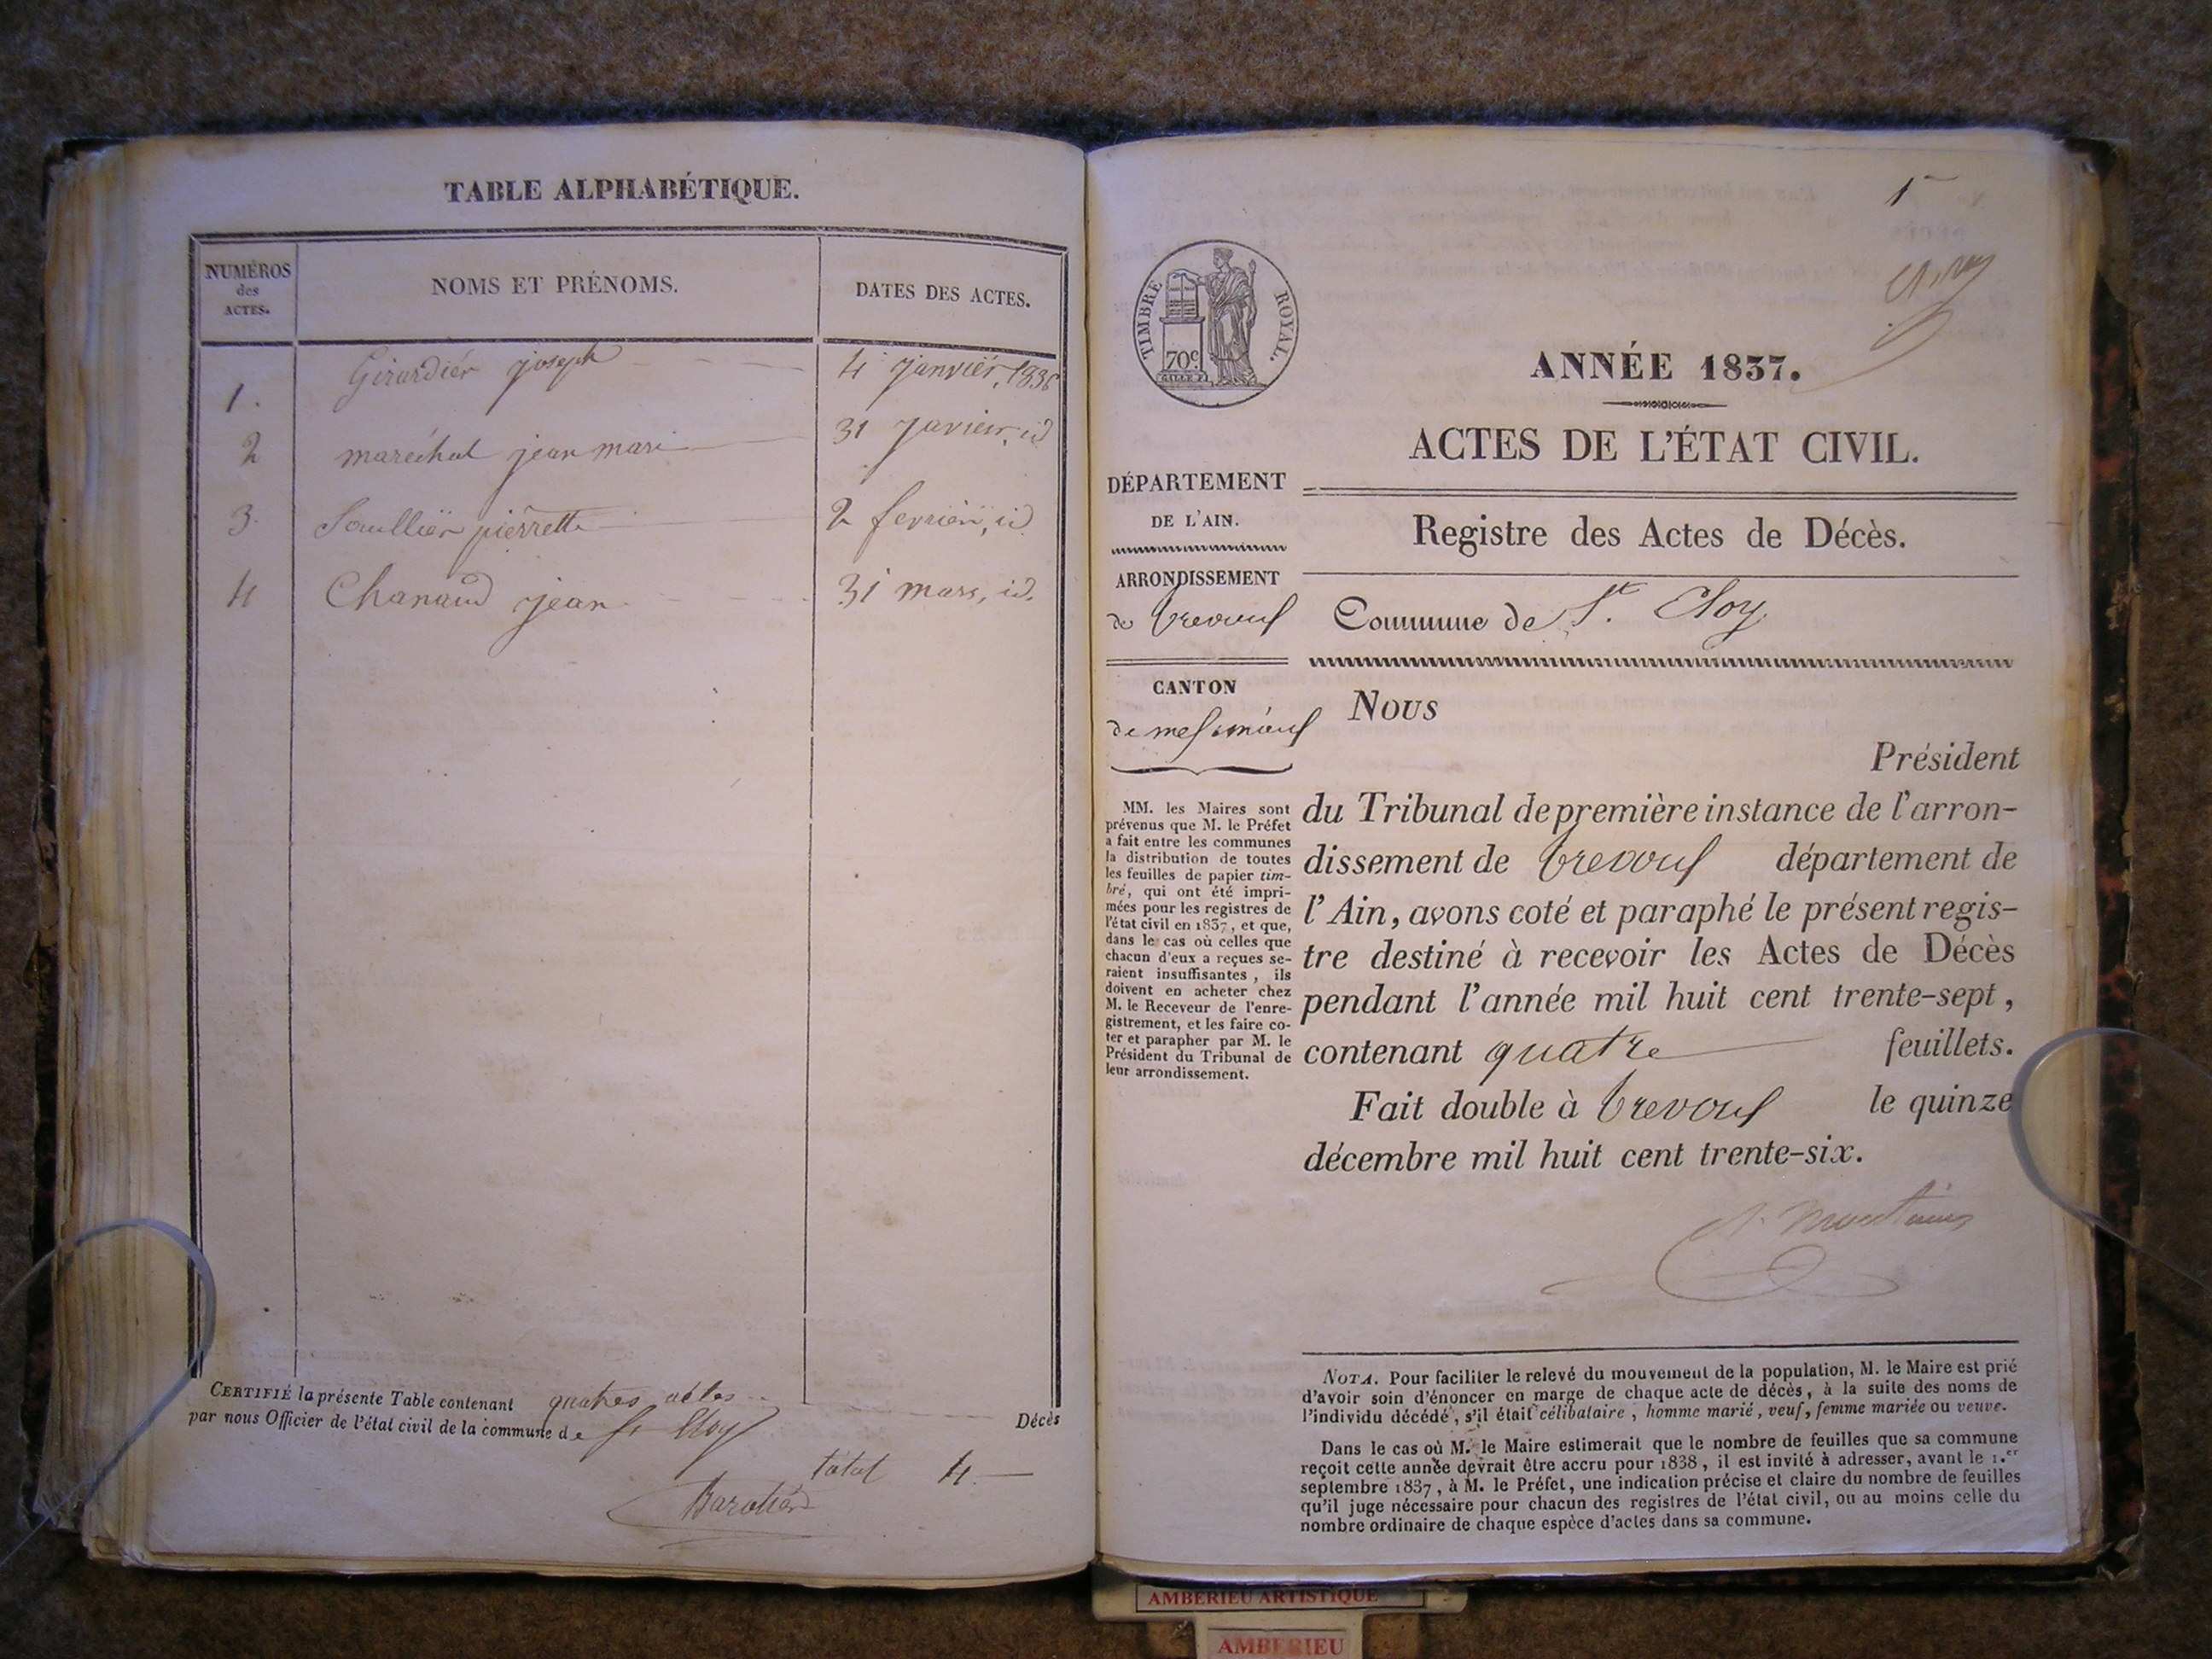 TABLE ALPHABÉTIQUE.
NUMÉROS
des
ACTES.
NOMS ET PRÉNOMS.
DATES DES ACTES.
1. Girardier joseph 4 janvier, 1836
2 maréchal jean mari 31 Javier, id
3. Saullier pierrette 2 fevrier, id
4 Chanaud jean 31 mars, id.
CERTIFIÉ la présente Table contenant quatres actes
par nous Officier de l'état civil de la commune de St Eloy Décès
total 4.
1
TIMBRE ROYAL.
70c.
ANNÉE 1837.
ACTES DE L'ÉTAT CIVIL.
DÉPARTEMENT
DE L'AIN.
Registre des Actes de Décès.
ARRONDISSEMENT
de trevoux
Commune de St. Eloy
CANTON
de meximieux
MM. les Maires sont
prévenus que M. le Préfet
a fait entre les communes
la distribution de toutes
les feuilles de papier tim-
bré, qui ont été impri-
mées pour les registres de
l'état civil en 1837, et que,
dans le cas où celles que
chacun d'eux a reçues se-
raient insuffisantes, ils
doivent en acheter chez
M. le Receveur de l'enre-
gistrement, et les faire co-
ter et parapher par M. le
Président du Tribunal de
leur arrondissement.
Nous
Président
du Tribunal de première instance de l'arron-
dissement de trevoux département de
l'Ain, avons coté et paraphé le présent regis-
tre destiné à recevoir les Actes de Décès
pendant l'année mil huit cent trente-sept,
contenant quatre feuillets.
Fait double à trevoux le quinze
décembre mil huit cent trente-six.
NOTA. Pour faciliter le relevé du mouvement de la population, M. le Maire est prié
d'avoir soin d'énoncer en marge de chaque acte de décès, à la suite des noms de
l'individu décédé, s'il était célibataire, homme marié, veuf, femme mariée ou veuve.
Dans le cas où M. le Maire estimerait que le nombre de feuilles que sa commune
reçoit cette année devrait être accru pour 1838, il est invité à adresser, avant le 1.er
septembre 1837, à M. le Préfet, une indication précise et claire du nombre de feuilles
qu'il juge nécessaire pour chacun des registres de l'état civil, ou au moins celle du
nombre ordinaire de chaque espèce d'actes dans sa commune.
AMBERIEU ARTISTIQUE
AMBERIEU